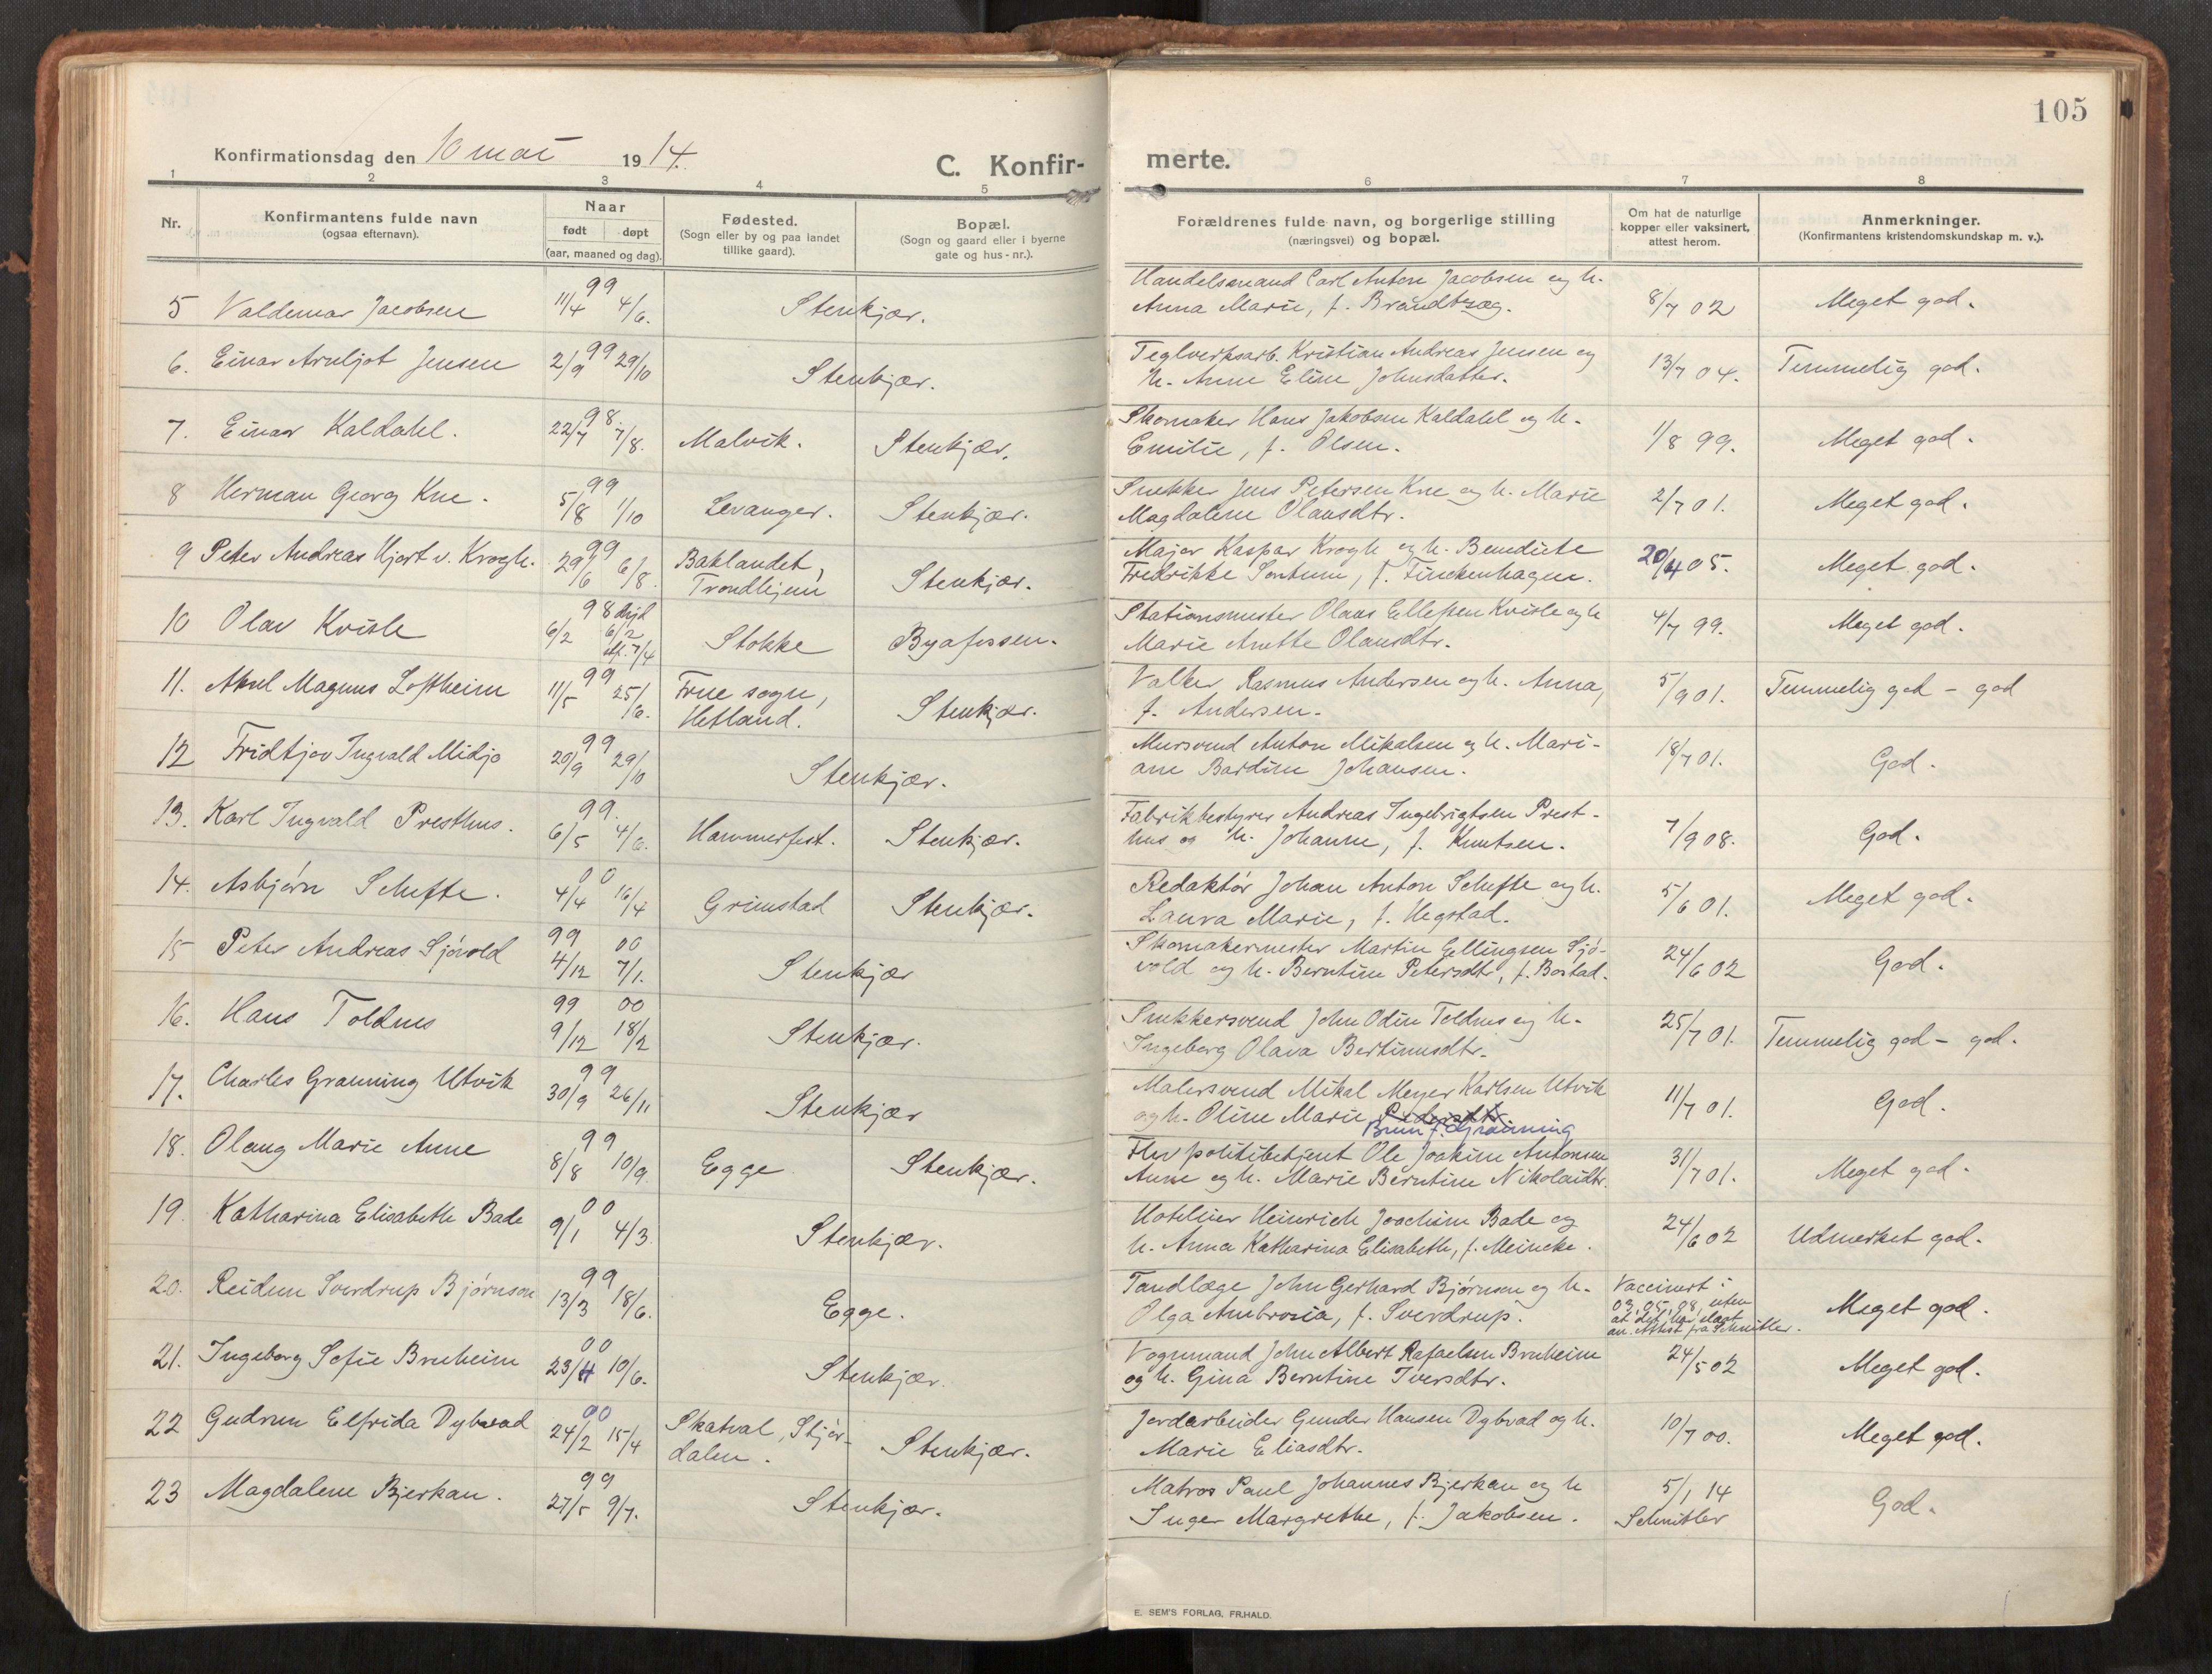 105
Konfirmationsdag den 10 mai 1914.
C. Konfir-
merte.
1 2 3 4 5 6 7 8
Nr.
Konfirmantens fulde navn
(ogsaa efternavn).
Naar
født døpt
(aar, maaned og dag).
Fødested.
(Sogn eller by og paa landet
tillike gaard).
Bopæl.
(Sogn og gaard eller i byerne
gate og hus-nr.).
Forældrenes fulde navn, og borgerlige stilling
(næringsvei) og bopæl.
Om hat de naturlige
kopper eller vaksinert,
attest herom.
Anmerkninger.
(Konfirmantens kristendomskundskap m. v.).
5 Valdemar Jacobsen 99 11/4 4/6. Stenkjær.
Handelsmand Carl Anton Jacobsen og h.
Anna Marie, f. Brandtzæg. 8/7 02 Meget god.
6. Einar Arnljot Jensen 99 2/9 29/10 Stenkjær.
Teglverksarb. Kristian Andreas Jensen og
h. Anne Eline Johnsdatter. 13/7 04. Temmelig god.
7. Einar Kaldahl. 98. 22/7 7/8. Malvik. Stenkjær.
Skomaker Hans Jakobsen Kaldahl og h.
Emilie, f. Olsen. 1/8 99. Meget god.
8 Herman Georg Kne. 99 5/8 1/10 Levanger. Stenkjær.
Snekker Jens Petersen Kne og h. Marie
Magdalene Olausdtr. 2/7 01. Meget god.
9 Peter Andreas Hjort v. Krogh. 99 29/6 6/8. Baklandet, Trondhjem Stenkjær.
Major Kaspar Krogh og h. Benedicte
Fredrikke Sontum, f. Finckenhagen. 20/4 05. Meget god.
10 Olav Kvisle 98 6/2 6/2 7/4 Stokke Byafossen.
Stationsmester Olaus Ellefsen Kvisle og h
Marie Anette Olausdtr. 4/7 99. Meget god.
11. Aksel Magnus Loftheim 99 11/5 25/6. Frue sogn, Hetland. Stenkjær.
Valker Rasmus Andersen og h. Anna,
f. Andersen. 5/9 01. Temmelig god - god
12 Fridtjov Ingvald Midjo 99 20/9 29/10 Stenkjær.
Mursvend Anton Mikalsen og h. Mari-
ane Bardine Johansen. 18/7 01. God.
13. Karl Ingvald Presthus. 99. 6/5 4/6. Hammerfest. Stenkjær.
Fabrikbestyrer Andreas Ingebrigtsen Prest-
hus og h. Johanne, f. Knutsen. 7/9 08. God.
14. Asbjørn Schefte. 00 4/4 16/4 Grimstad Stenkjær.
Redaktør Johan Anton Schefte og h.
Laura Marie, f. Hegstad. 5/6 01. Meget god.
15 Peter Andreas Sjøvold 99 00 4/12 7/1. Stenkjær
Skomakermester Martin Ellingsen Sjø-
vold og h. Berntine Petersdtr, f. Bostad. 24/6 02 God.
16. Hans Toldnes 99 00 9/12 18/2 Stenkjær.
Snekkersvend John Odin Toldnes og h.
Ingeborg Olava Bertinusdtr. 25/7 01. Temmelig god - god.
17. Charles Granning Utvik 99 30/9 26/11 Stenkjær
Malersvend Mikal Meyer Karlsen Utvik
og h. Oline Marie Pedersdtr.
Brun f. Granning 11/7 01. God.
18. Olaug Marie Anne 99 8/8 10/9. Egge Stenkjær.
Fhv politibetjent Ole Joakim Antonsen
Anne og h. Marie Berntine Nikolaidtr. 31/7 01. Meget god.
19. Katharina Elisabeth Bade 00 9/1 4/3. Stenkjær.
Hotelier Heinrich Joachim Bade og
h. Anna Katharina Elisabeth, f. Meincke. 24/6 02 Udmerket god.
20. Reidun Sverdrup Bjørnson 99 13/3 18/6. Egge.
Tandlæge John Gerhard Bjørnsen og h.
Olga Ambrosia, f. Sverdrup. Vaccinert i
03, 05, 08, uten
at det har slaat
an. Attest fra Schnitler. Meget god.
21. Ingeborg Sofie Bruheim 00 23/4 10/6. Stenkjær.
Vognmand John Albert Rafaelsen Bruheim
og h. Gina Berntine Iversdtr. 24/5 02 Meget god.
22 Gudrun Elfrida Dybvad 00 24/2 15/4 Skatval, Stjør-
dalen. Stenkjær.
Jordarbeider Gunder Hansen Dybvad og h.
Marie Eliasdtr. 10/7 00. Meget god.
23 Magdalene Bjerkan. 99 27/5 9/7. Stenkjær.
Matros Paul Johannes Bjerkan og h
Inger Margrethe, f. Jakobsen. 5/1 14
Schnitler God.
E. SEM'S FORLAG, FR.HALD.